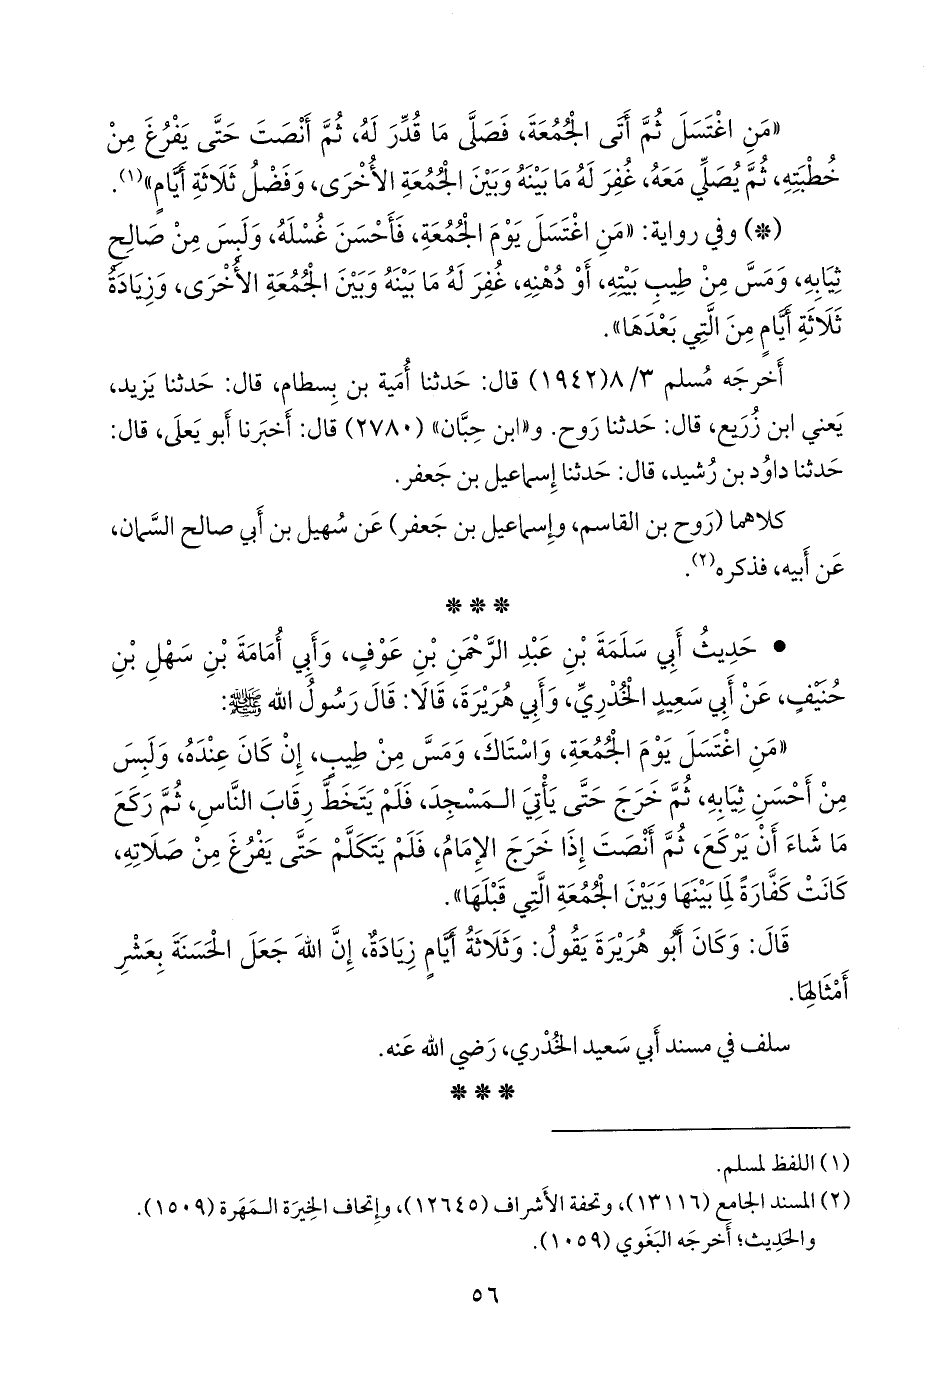 «مَنِ اغْتَسَلَ ثُمَّ أَتَى الْجُمُعَةَ، فَصَلَّى مَا قُدِّرَ لَهُ، ثُمَّ أَنْصَتَ حَتَّى يَفْرُغَ مِنْ
خُطْبَتِهِ، ثُمَّ يُصَلِّي مَعَهُ، غُفِرَ لَهُ مَا بَيْنَهُ وَبَيْنَ الْجُمُعَةِ الأُخْرَى، وَفَضْلُ ثَلَاثَةِ أَيَّامٍ»(١).
(*) وفي رواية: «مَنِ اغْتَسَلَ يَوْمَ الْجُمُعَةِ، فَأَحْسَنَ غُسْلَهُ، وَلَبِسَ مِنْ صَالِحِ
ثِيَابِهِ، وَمَسَّ مِنْ طِيبِ بَيْتِهِ، أَوْ دُهْنِهِ، غُفِرَ لَهُ مَا بَيْنَهُ وَبَيْنَ الْجُمُعَةِ الأُخْرَى، وَزِيَادَةُ
ثَلَاثَةِ أَيَّامٍ مِنَ الَّتِي بَعْدَهَا».
أَخرجَه مُسلم ٣/ ٨(١٩٤٢) قال: حَدثنا أُمَية بن بِسطام، قال: حَدثنا يَزيد،
يَعني ابن زُرَيع، قال: حَدثنا رَوح. و«ابن حِبَّان» (٢٧٨٠) قال: أَخبَرنا أَبو يَعلَى، قال:
حَدثنا داوُد بن رُشيد، قال: حَدثنا إِسماعيل بن جَعفر.
كلاهما (رَوح بن القاسم، وإِسماعيل بن جَعفر) عَن سُهيل بن أَبي صالح السَّمان،
عَن أَبيه، فذكره(٢).
* * *
• حَدِيثُ أَبِي سَلَمَةَ بْنِ عَبْدِ الرَّحْمَنِ بْنِ عَوْفٍ، وَأَبِي أُمَامَةَ بْنِ سَهْلِ بْنِ
حُنَيْفٍ، عَنْ أَبِي سَعِيدٍ الْخُدْرِيِّ، وَأَبِي هُرَيْرَةَ، قَالَا: قَالَ رَسُولُ الله ﷺ:
«مَنِ اغْتَسَلَ يَوْمَ الْجُمُعَةِ، وَاسْتَاكَ، وَمَسَّ مِنْ طِيبٍ، إِنْ كَانَ عِنْدَهُ، وَلَبِسَ
مِنْ أَحْسَنِ ثِيَابِهِ، ثُمَّ خَرَجَ حَتَّى يَأْتِيَ الْمَسْجِدَ، فَلَمْ يَتَخَطَّ رِقَابَ النَّاسِ، ثُمَّ رَكَعَ
مَا شَاءَ أَنْ يَرْكَعَ، ثُمَّ أَنْصَتَ إِذَا خَرَجَ الإِمَامُ، فَلَمْ يَتَكَلَّمْ حَتَّى يَفْرُغَ مِنْ صَلَاتِهِ،
كَانَتْ كَفَّارَةً لِمَا بَيْنَهَا وَبَيْنَ الْجُمُعَةِ الَّتِي قَبْلَهَا».
قَالَ: وَكَانَ أَبُو هُرَيْرَةَ يَقُولُ: وَثَلَاثَةُ أَيَّامٍ زِيَادَةٌ، إِنَّ اللهَ جَعَلَ الْحَسَنَةَ بِعَشْرِ
أَمْثَالِهَا.
سلف في مسند أَبي سَعيد الخُدْري، رَضي الله عَنه.
* * *
(١) اللفظ لمسلم.
(٢) المسند الجامع (١٣١١٦)، وتحفة الأَشراف (١٢٦٤٥)، وإتحاف الخِيرَة الـمَهَرة (١٥٠٩).
والحَدِيث؛ أَخرجَه البَغَوي (١٠٥٩).
٥٦